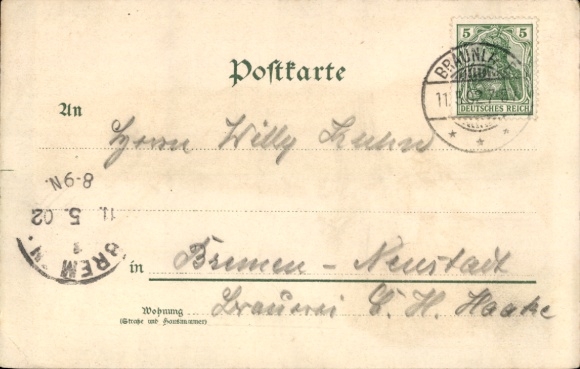 5 5
DEUTSCHES REICH
BRAUNL
11.5.02
Postkarte
An
Herrn Willy Kuhn
8-9N.
11. 5. 02
BREM
in Bremen - Neustadt
Wohnung
(Straße und Hausnummer)
Brauerei C. H. Haake